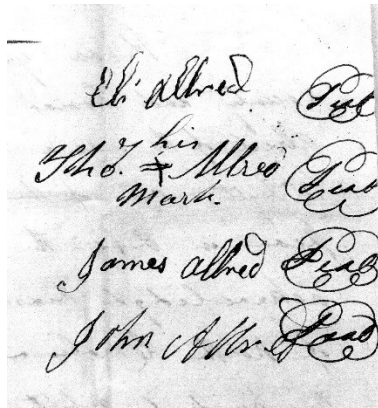 Eli Allred Seal
his
Tho. Allred Seal
mark.
James Allred Seal
John Allred Seal